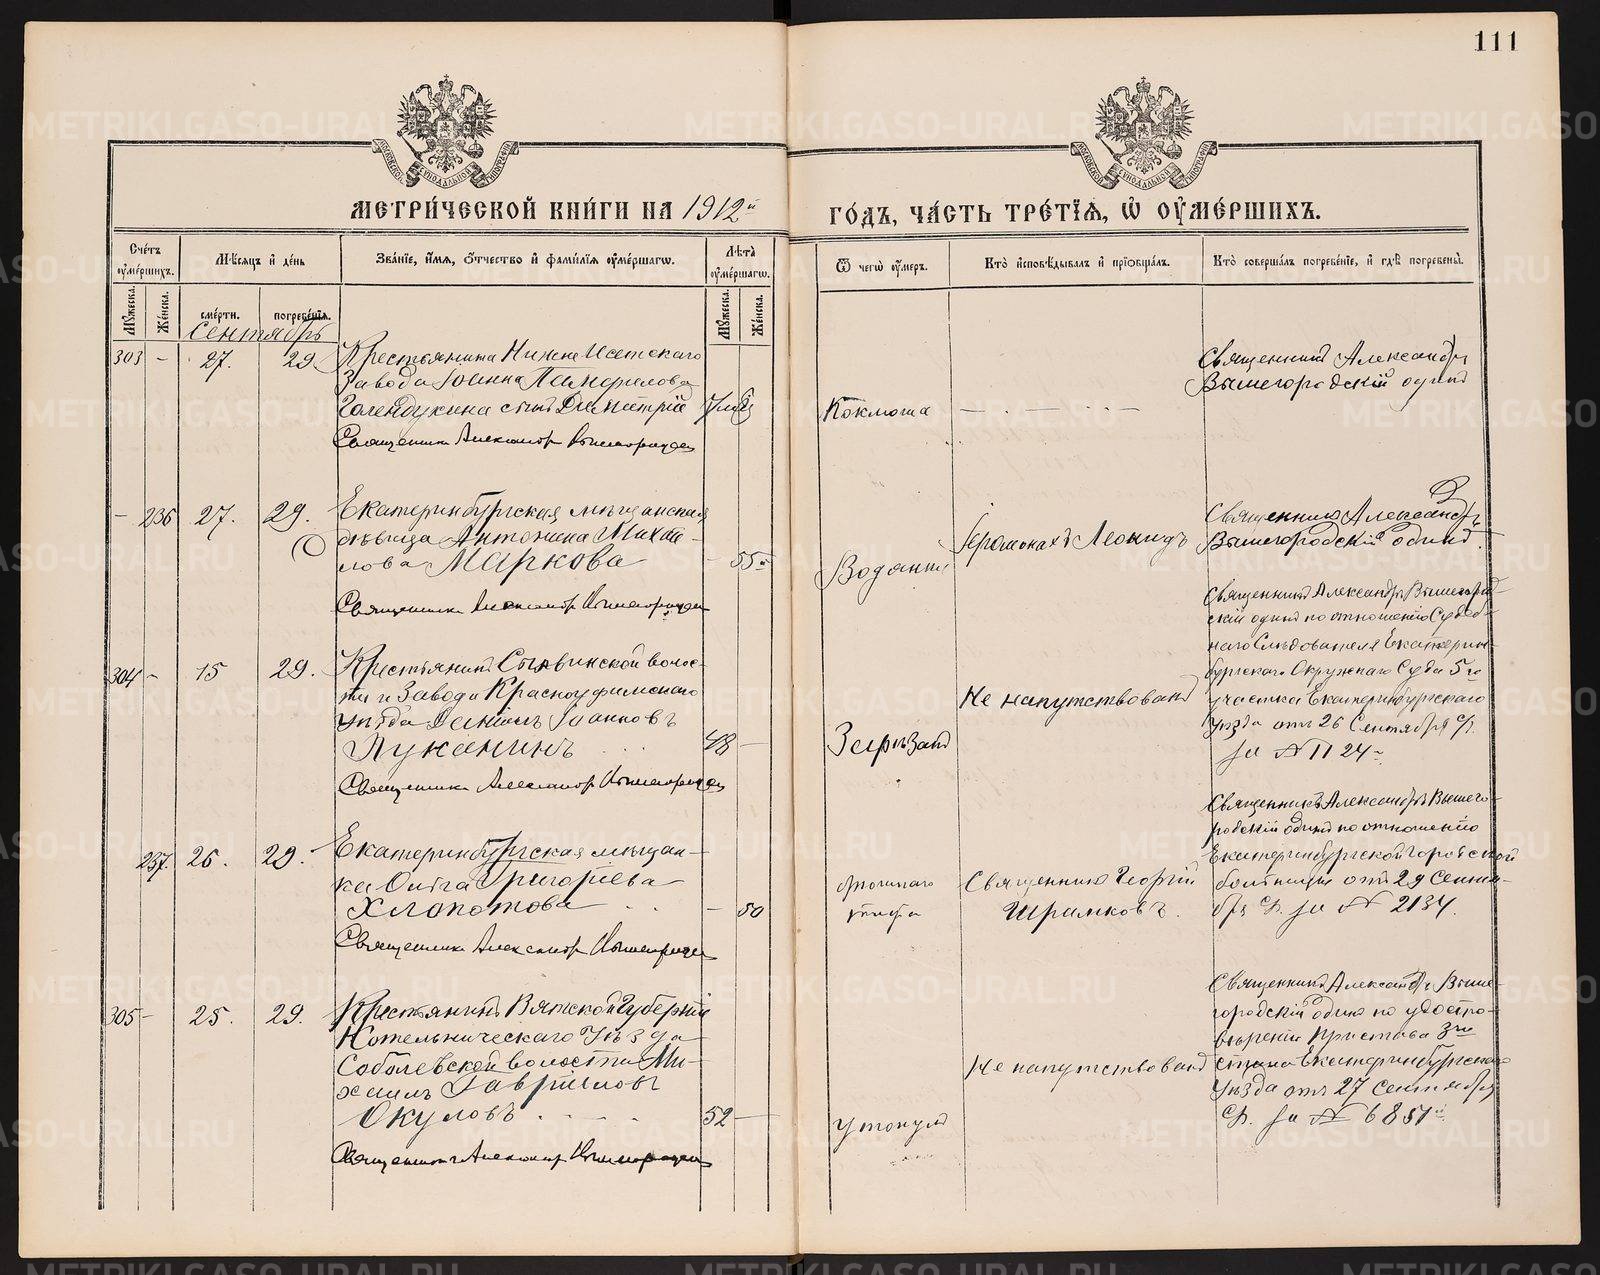 111
МЕТРИЧЕСКОЙ КНИГИ НА 1912й
ГОДЪ, ЧАСТЬ ТРЕТІЯ, Ѿ ОУМЕРШИХЪ.
Счетъ оумершихъ.
Мужеска.
Женска.
Мѣсяцъ и день
смерти.
погребенія.
Званіе, имя, отчество и фамилія оумершагѡ.
Лѣта оумершагѡ.
Мужеска.
Женска.
Ѿ чегѡ оумеръ.
Кто исповѣдывалъ и пріобщалъ.
Кто совершалъ погребеніе, и гдѣ погребены.
Сентябрь
303 - 27. 29
Крестьянина Нижне Исетскаго
Завода Іоанна Памфилова
Голендухина сынъ Димитрій
Священникъ Александръ Вышегородскій
Коклюша
Священникъ Александръ
Вышегородскій одинъ
- 236 27. 29.
Екатеринбургская мѣщанская
дѣвица Антонина Михаи-
лова Маркова - 55
Священникъ Александръ Вышегородскій
Водянки
Іеромонахъ Леонидъ
Священникъ Александръ
Вышегородскій одинъ.
304 - 15 29.
Крестьянинъ Сылвинской волос-
ти и Завода Красноуфимскаго
уѣзда Даніилъ Іоанновъ
Лукининъ 48 -
Священникъ Александръ Вышегородскій
Зарѣзанъ
Не напутствованъ
Священникъ Александръ Вышегород-
скій одинъ по отношенію Судеб-
наго Слѣдователя Екатерин-
бургскаго Окружнаго Суда 5го
участка Екатеринбургскаго
уѣзда отъ 26 Сентября с/г.
за № 1124
237. 26. 29.
Екатеринбургская мѣщан-
ка Ольга Григорьева
Хлопотова - 50
Священникъ Александръ Вышегородскій
Брюшного
тифа
Священникъ Георгій
Шрамковъ.
Священникъ Александръ Вышего-
родскій одинъ по отношенію
Екатеринбургской городской
больницы отъ 29 Сентя-
бря с/г. за № 2134.
305 - 25. 29.
Крестьянинъ Вятской Губерніи
Котельническаго Уѣзда
Соболевской волости Ми-
хаилъ Гавріиловъ
Окуловъ 52 -
Священникъ Александръ Вышегородскій
Утонулъ
Не напутствованъ
Священникъ Александръ Выше-
городскій одинъ по удосто-
вѣренію Пристава 3го
стана Екатеринбургскаго
Уѣзда отъ 27 Сентября
с/г. за № 6851
METRIKI.GASO-URAL.RU